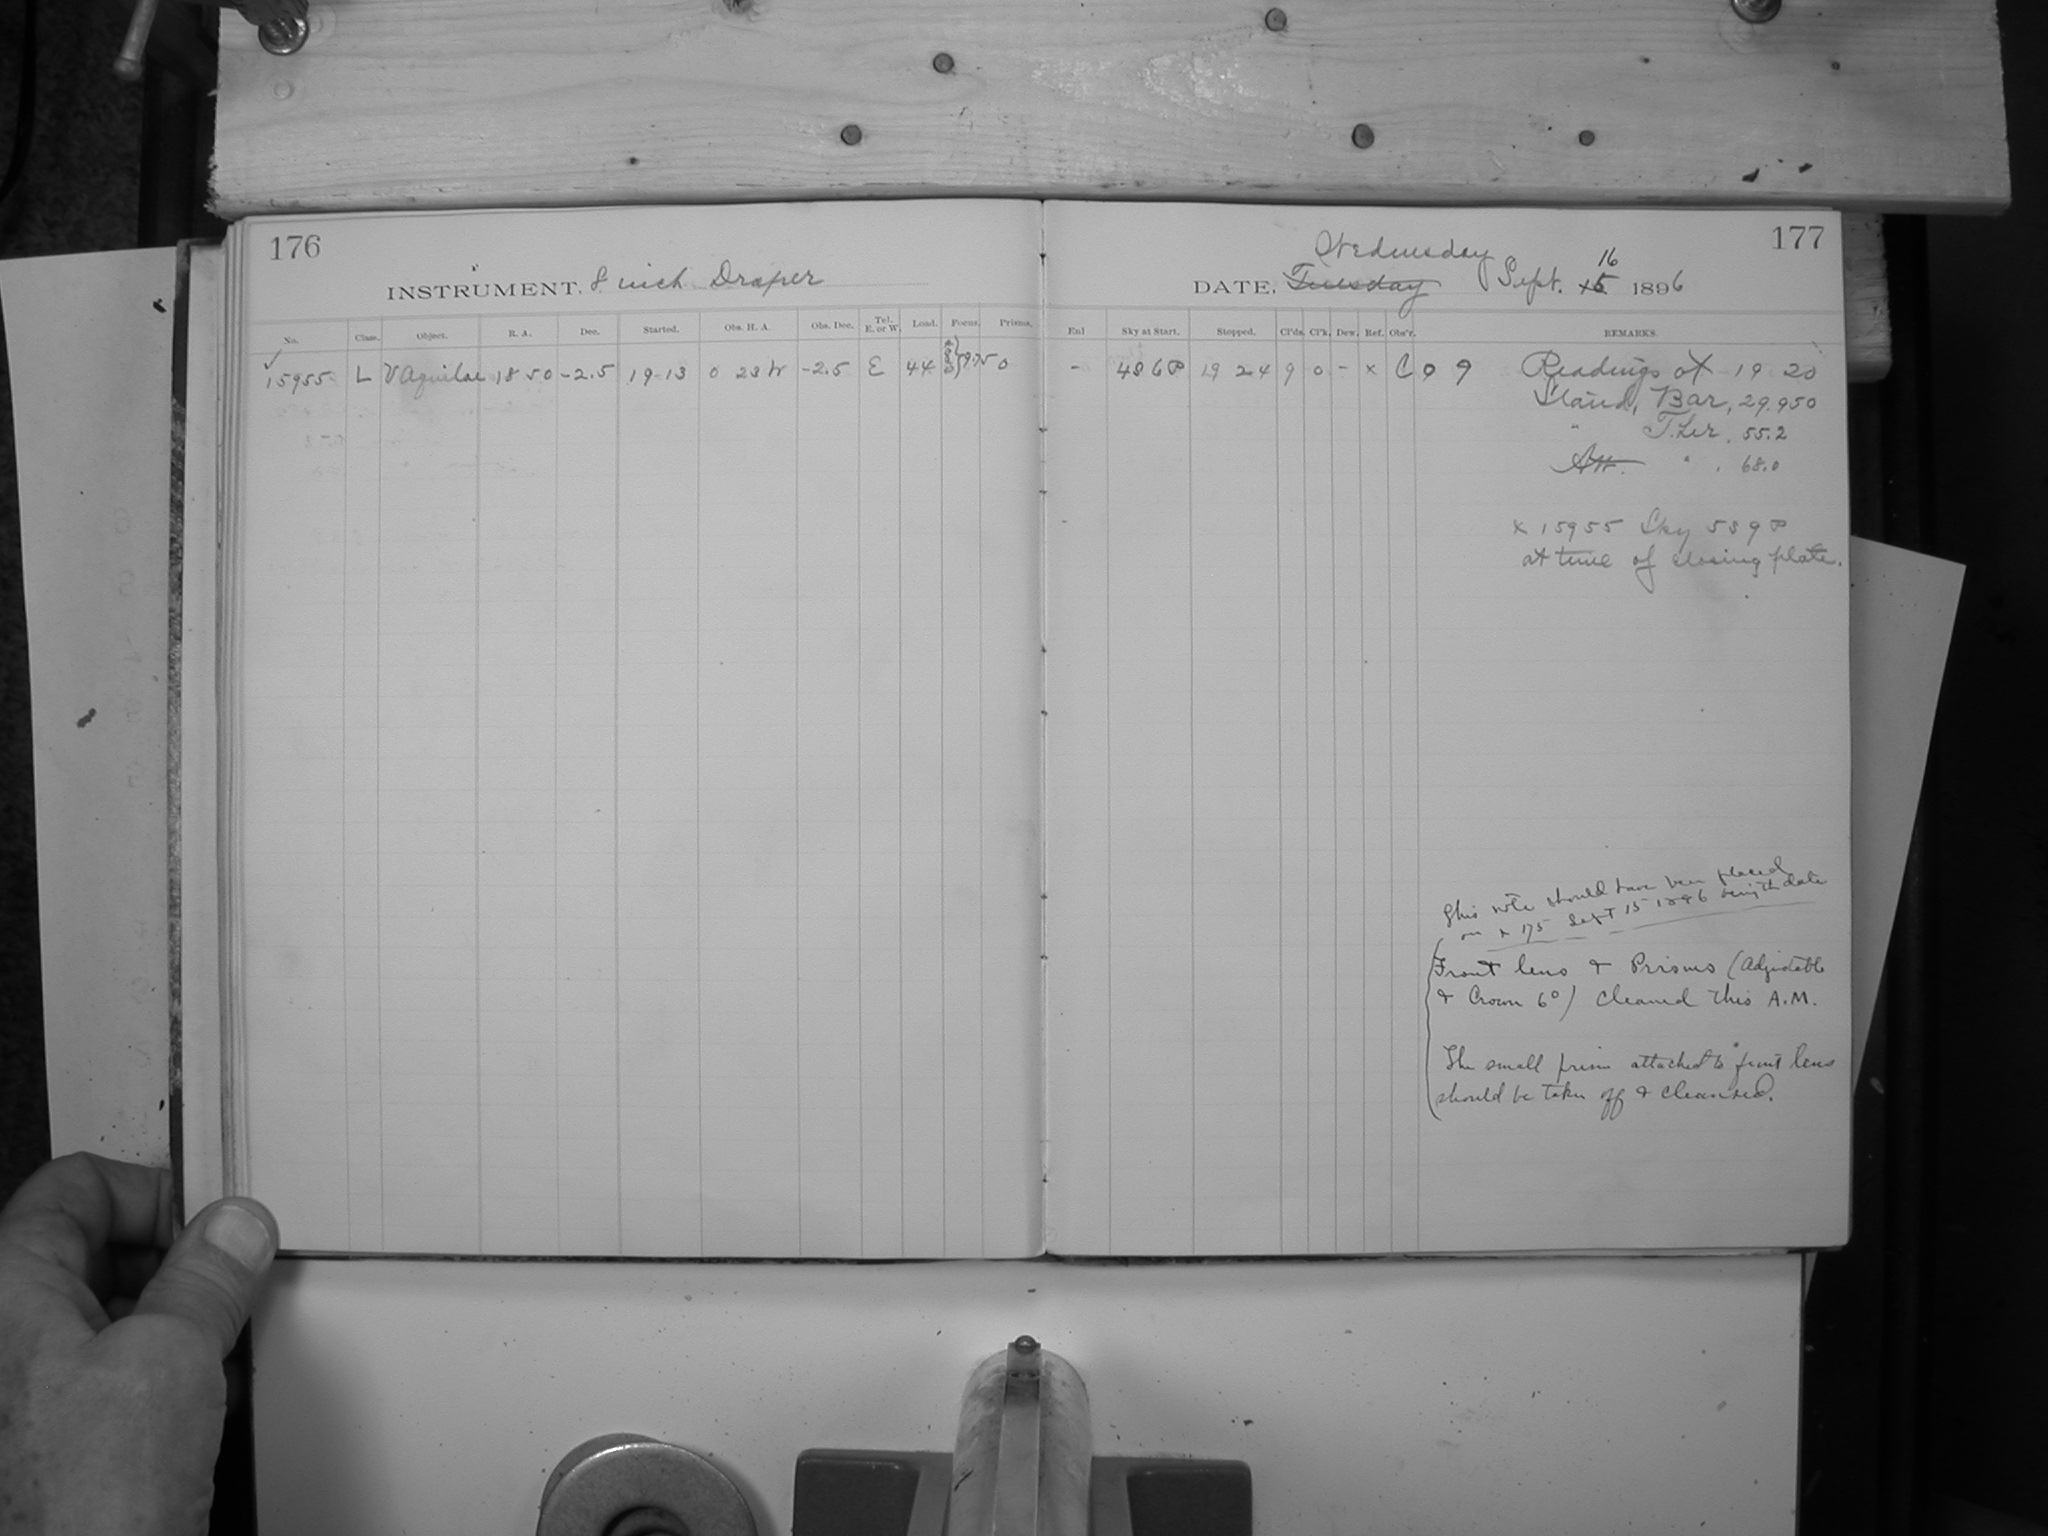 176
INSTRUMENT, 8 inch Draper
No. Class. Object. R. A. Dec. Started. Obs. H. A. Obs. Dec. Tel. E. or W. Load. Focus. Prisms.
15955 L V Aquilae 18 50 -2.5 19-13 0 23 W -2.5 E 44 0
177
Wednesday
16
DATE, Tuesday Sept. 15 1896
Enl Sky at Start. Stopped. Cl'ds. Cl'k. Dew. Ref. Obs'r. REMARKS.
- 486P 19 24 9 0 - x C 0 9 Readings at 19 20
Stand, Bar, 29.950
" Ther. 55.2
Att. " . 68.0
x 15955 Sky 539P
at time of closing plate.
This note should have been placed
on 175 Sept 15 1896 date
Front lens & Prisms (Adjustable
& Crown 6°) cleaned this A.M.
The small prism attached to front lens
should be taken off & cleansed.